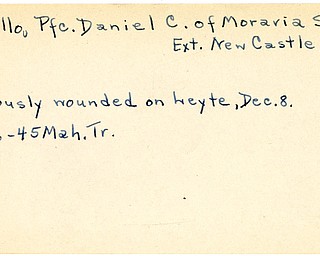 llo, Pfc. Daniel C. of Moravia S
Ext. New Castle
ously wounded on Leyte, Dec. 8.
-45 Mah. Tr.